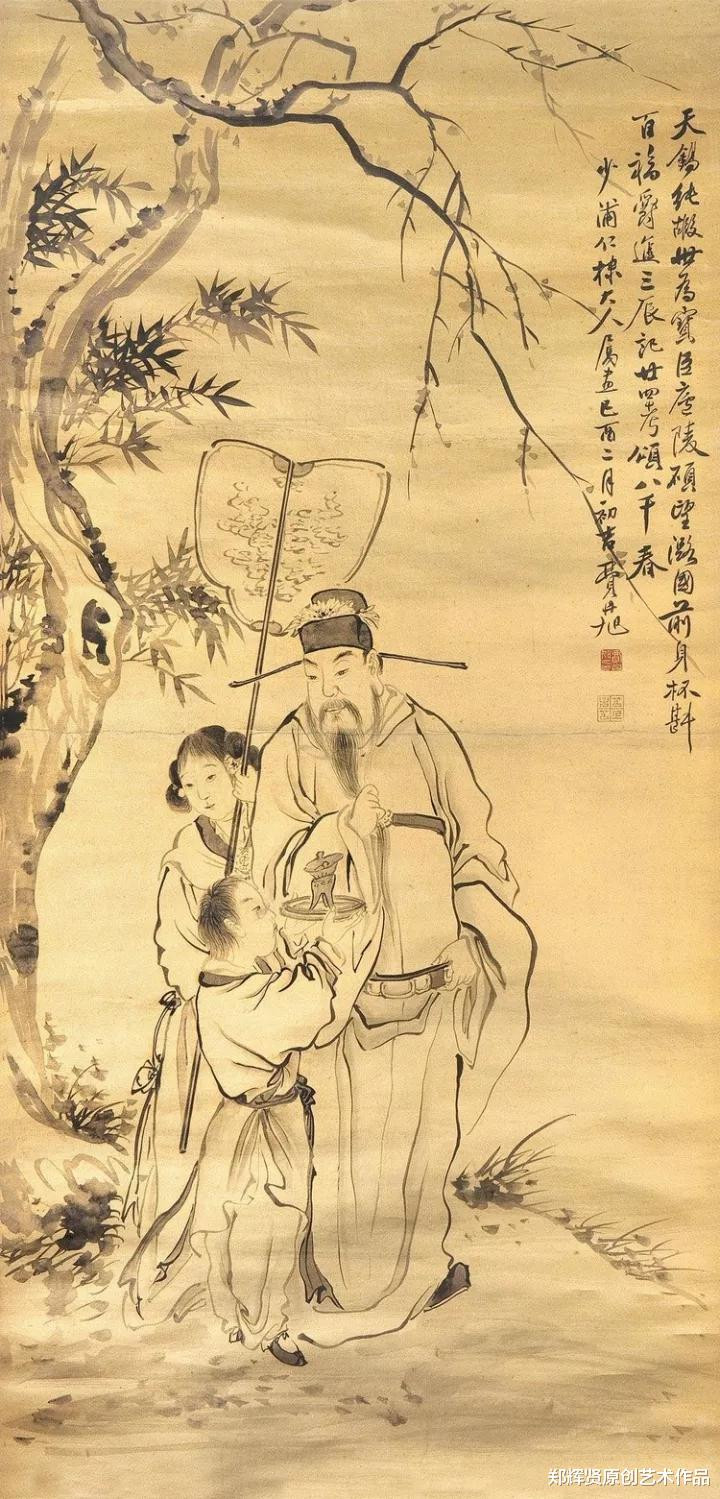 天錫純嘏世為寶臣廬陵碩望潞國前身杯斟
百福爵進三辰記廿四考頌八千春
少浦仁棣大人属畫己酉二月初吉費丹旭
郑辉贤原创艺术作品